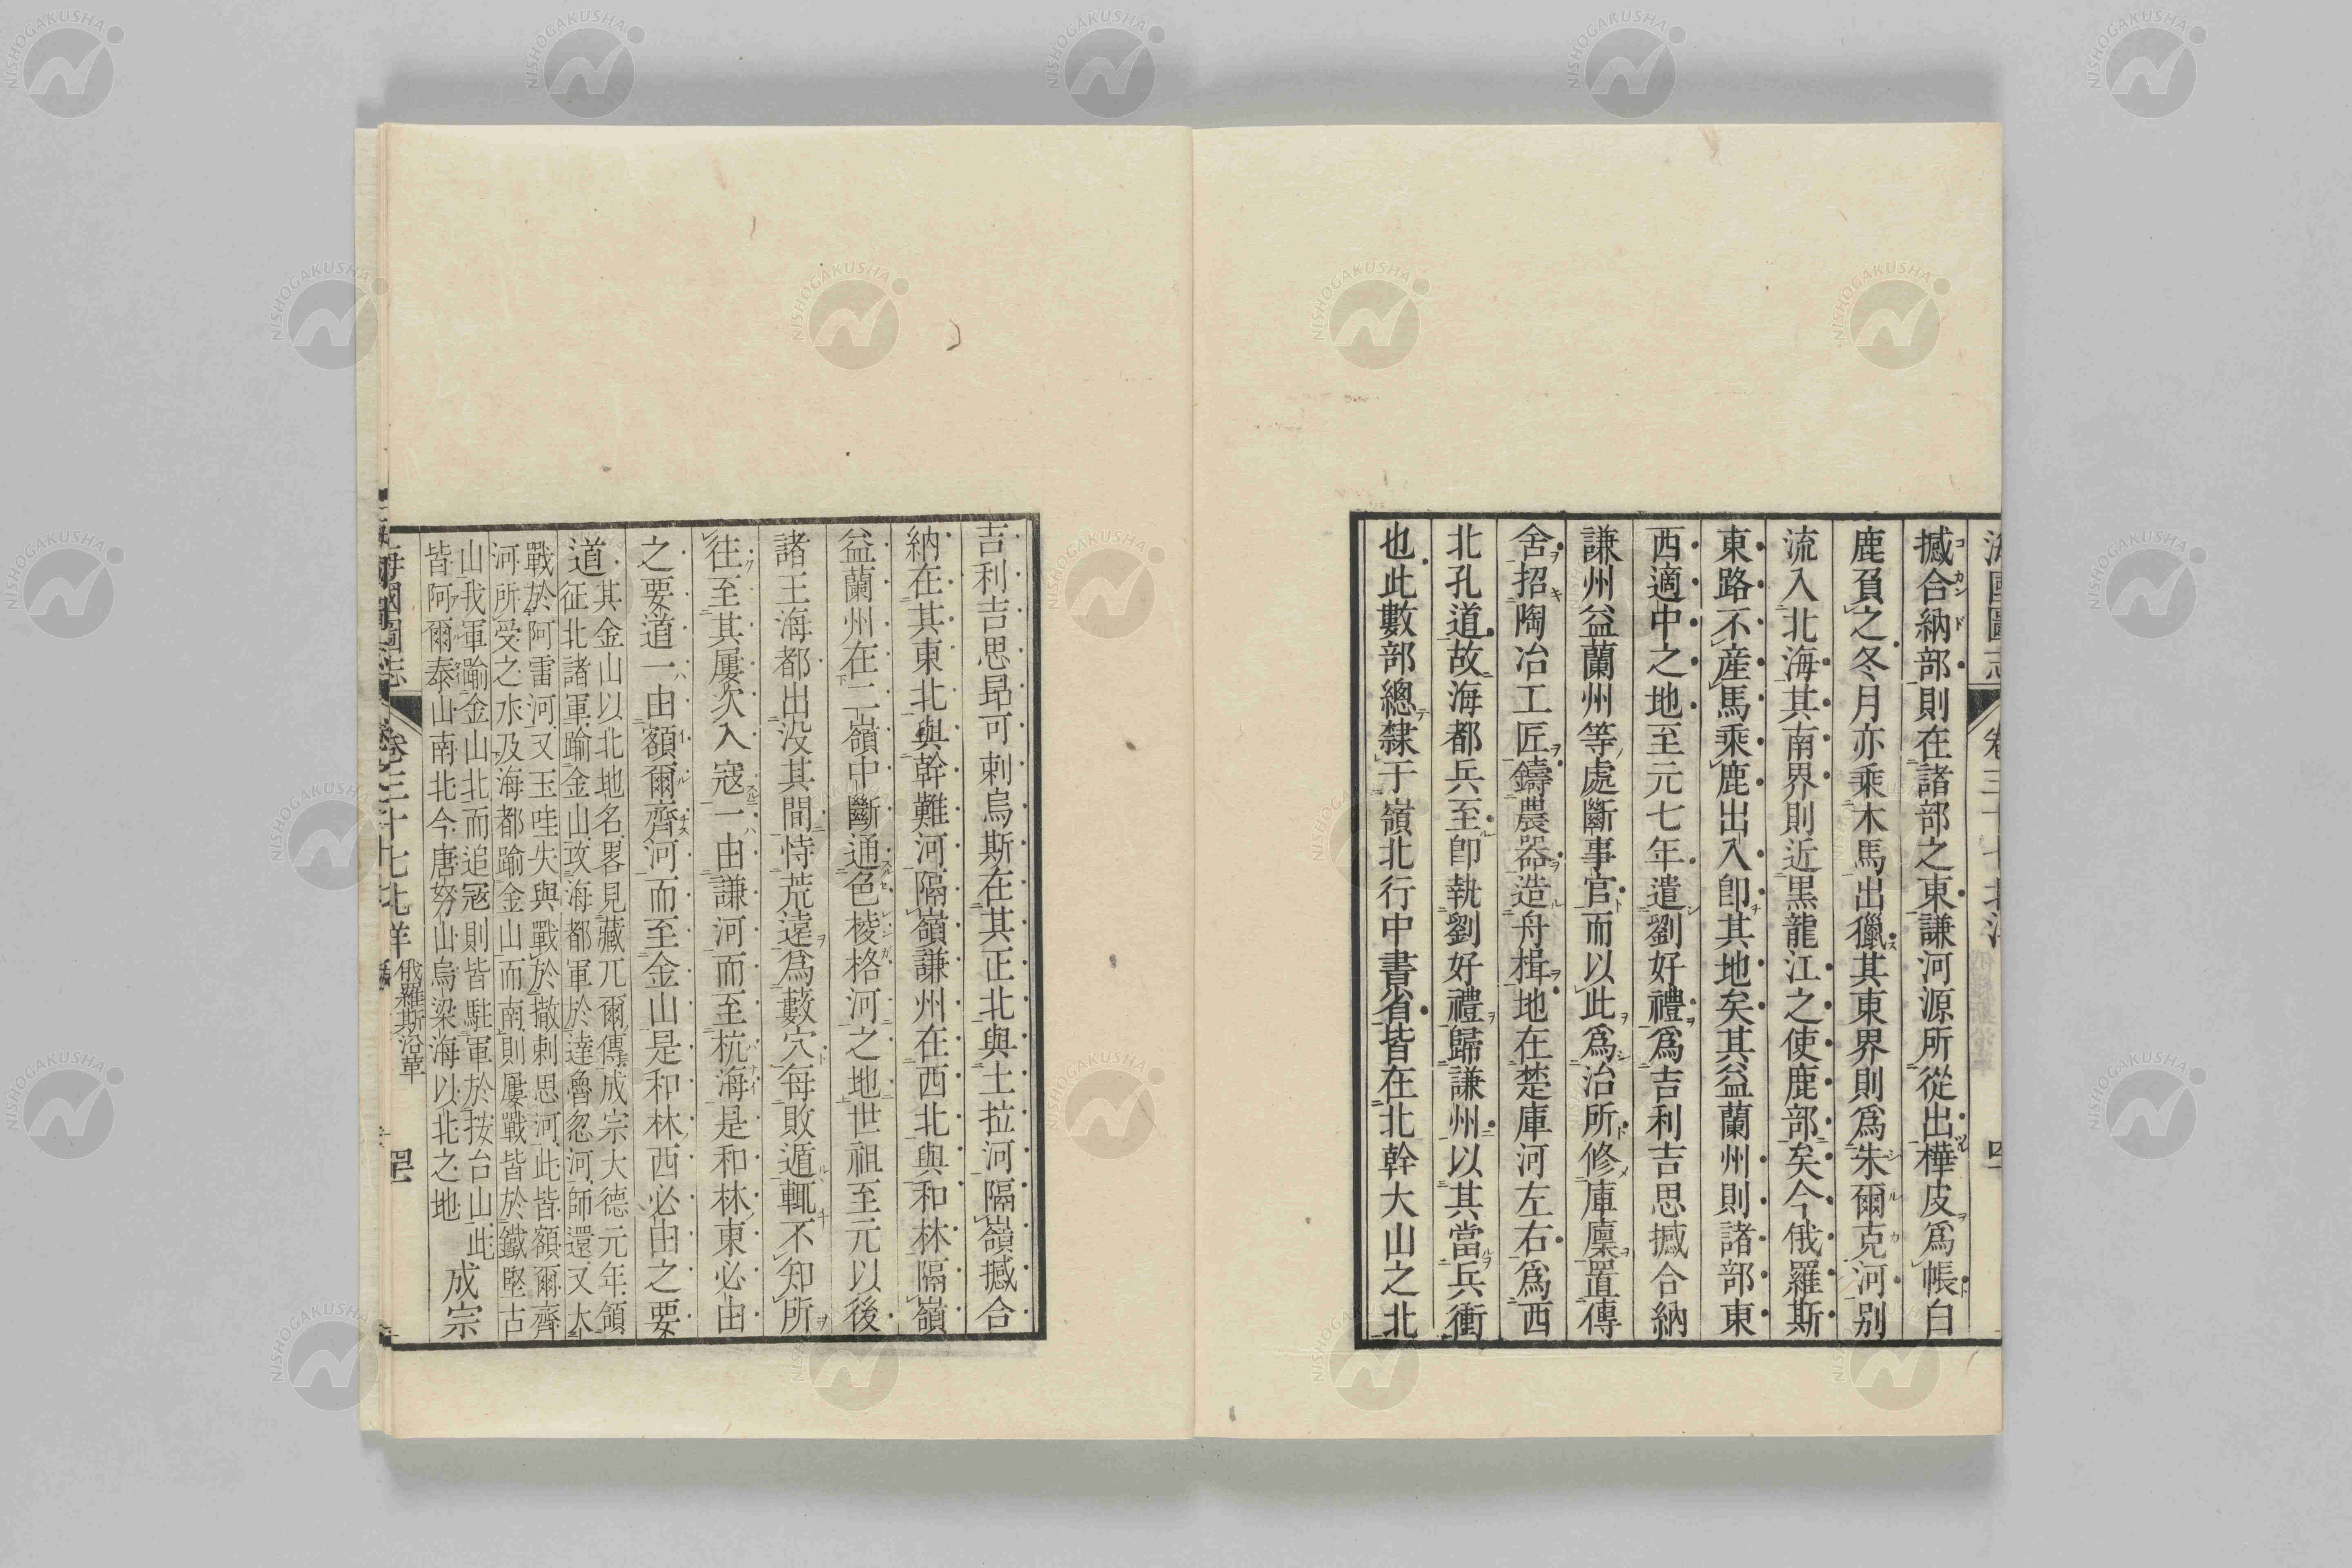 海國圖志 卷三十七北洋
撼合納部則在諸部之東謙河源所從出樺皮爲帳白
鹿負之冬月亦乘木馬出獵其東界則爲朱爾克河别
流入北海其南界則近黒龍江之使鹿部矣今俄羅斯
東路不產馬乘鹿出入卽其地矣其益蘭州則諸部東
西適中之地至元七年遣劉好禮爲吉利吉思撼合納
謙州益蘭州等處斷事官而以此爲治所修庫廩置傳
舍招陶冶工匠鑄農器造舟楫地在楚庫河左右爲西
北孔道故海都兵至卽執劉好禮歸謙州以其當兵衝
也此數部總隸于嶺北行中書省皆在北幹大山之北
吉利吉思昂可剌烏斯在其正北與土拉河隔嶺撼合
納在其東北與幹難河隔嶺謙州在西北與和林隔嶺
益蘭州在二嶺中斷通色棱格河之地世祖至元以後
諸王海都出没其間恃荒遠爲藪穴每敗遁輒不知所
往至其屢次入寇一由謙河而至杭海是和林東必由
之要道一由額爾齊河而至金山是和林西必由之要
道
其金山以北地名畧見藏兀爾傳成宗大德元年領
征北諸軍踰金山攻海都軍於達魯忽河師還又大
戰於阿雷河又玉哇失與戰於撒剌思河此皆額爾齊
河所受之水及海都踰金山而南則屢戰皆於鐵堅古
山我軍踰金山北而追寇則皆駐軍於按台山此
皆阿爾泰山南北今唐努山烏梁海以北之地
成宗
海國圖志 卷三十七北洋 俄羅斯沿革